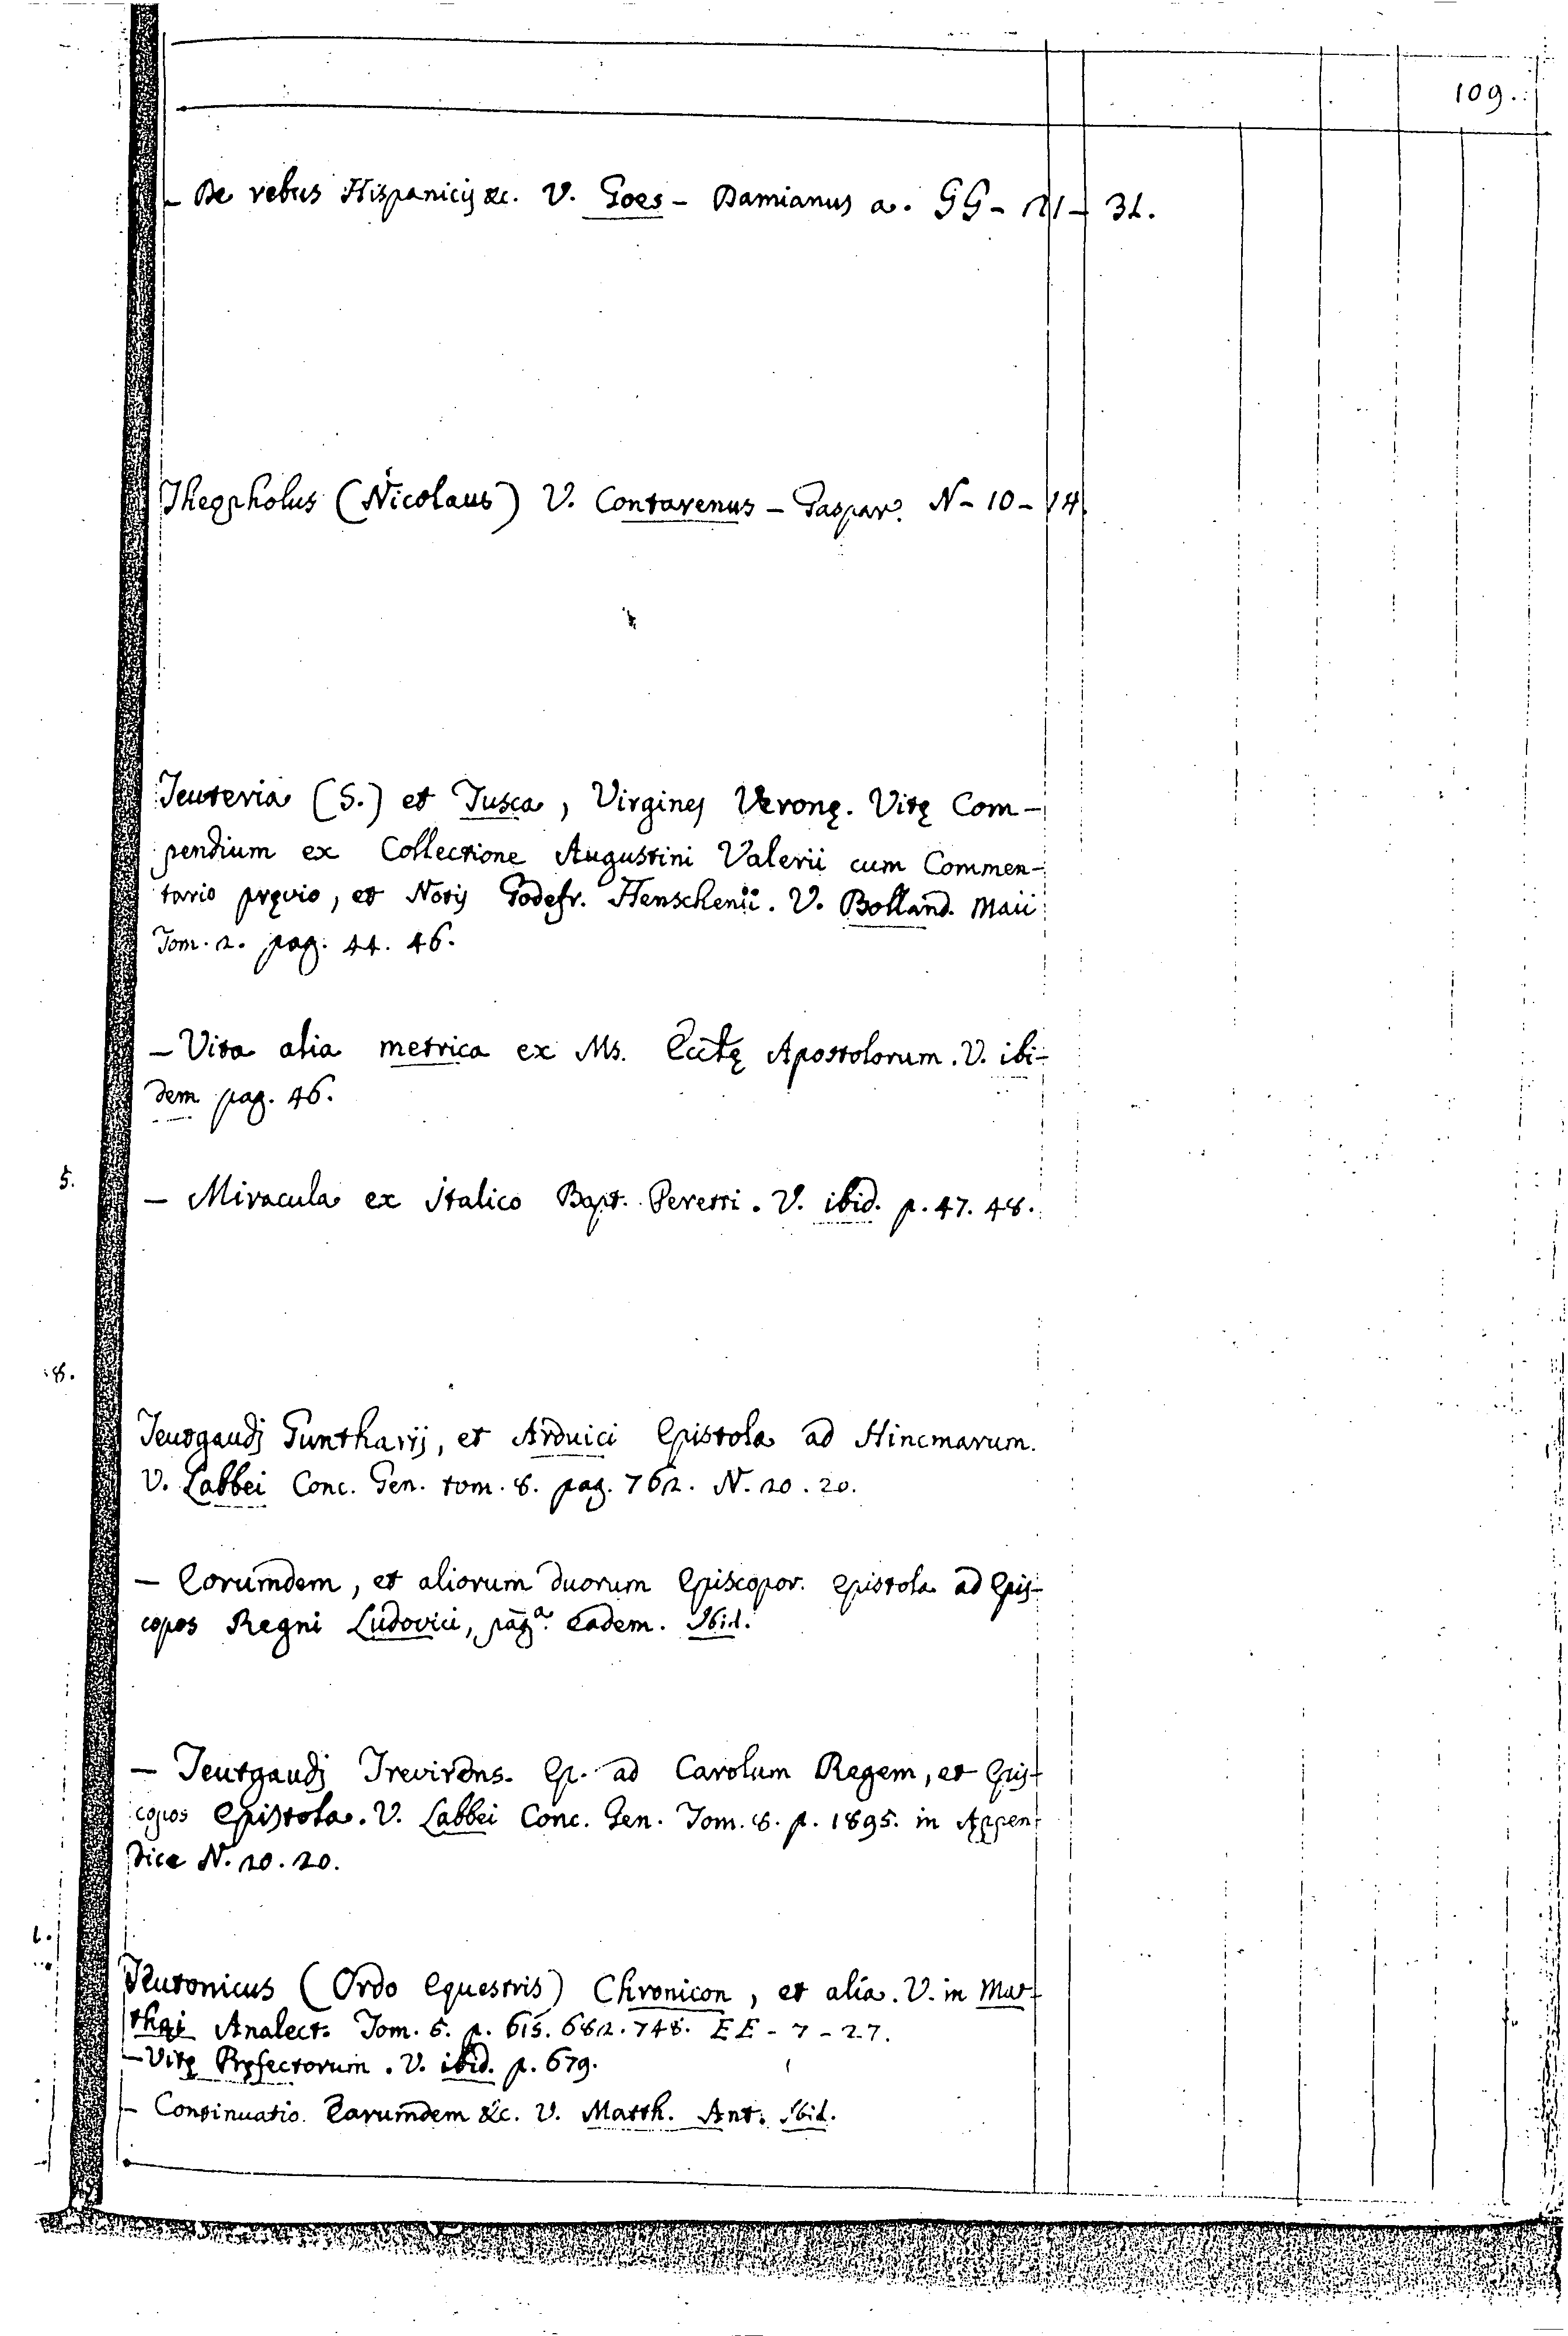 109.
- De rebus Hispanicis &c. V. Goes - Damianus a. GG - 21 - 31.
Thegpholus (Nicolaus) V. Contarenus - Gaspar. N - 10 - 14.
Teuteria (S.) et Tusca, Virgines Veronę. Vitę Com-
pendium ex Collectione Augustini Valerii cum Commen-
tario pręvio, et Notis Godefr. Henschenii. V. Bolland. Maii
Tom. 2. pag. 44. 46.
- Vita alia metrica ex Ms. Ecclę Apostolorum. V. ibi-
dem pag. 46.
5.
- Miracula ex italico Bapt. Peretti. V. ibid. p. 47. 48.
8.
Teutgaudj Guntharij, et Arduici Epistola ad Hincmarum.
V. Labbei Conc. Gen. tom. 8. pag. 762. N. 20. 20.
- Eorumdem, et aliorum duorum Episcopor. epistola ad Epis-
copos Regni Ludovici, pag.a eadem. Ibid.
- Teutgaudj Trevirens. Ep. ad Carolum Regem, et Epis-
copos Epistola. V. Labbei Conc. Gen. Tom. 8. p. 1895. in Appen-
dice N. 20. 20.
Teutonicus (Ordo Equestris) Chronicon, et alia. V. in Mat-
thęi Analect. Tom. 5. p. 615. 682. 748. EE - 7 - 27.
- Vitę Pręfectorum. V. ibid. p. 679.
- Continuatio Earumdem &c. V. Matth. Ant. Ibid.